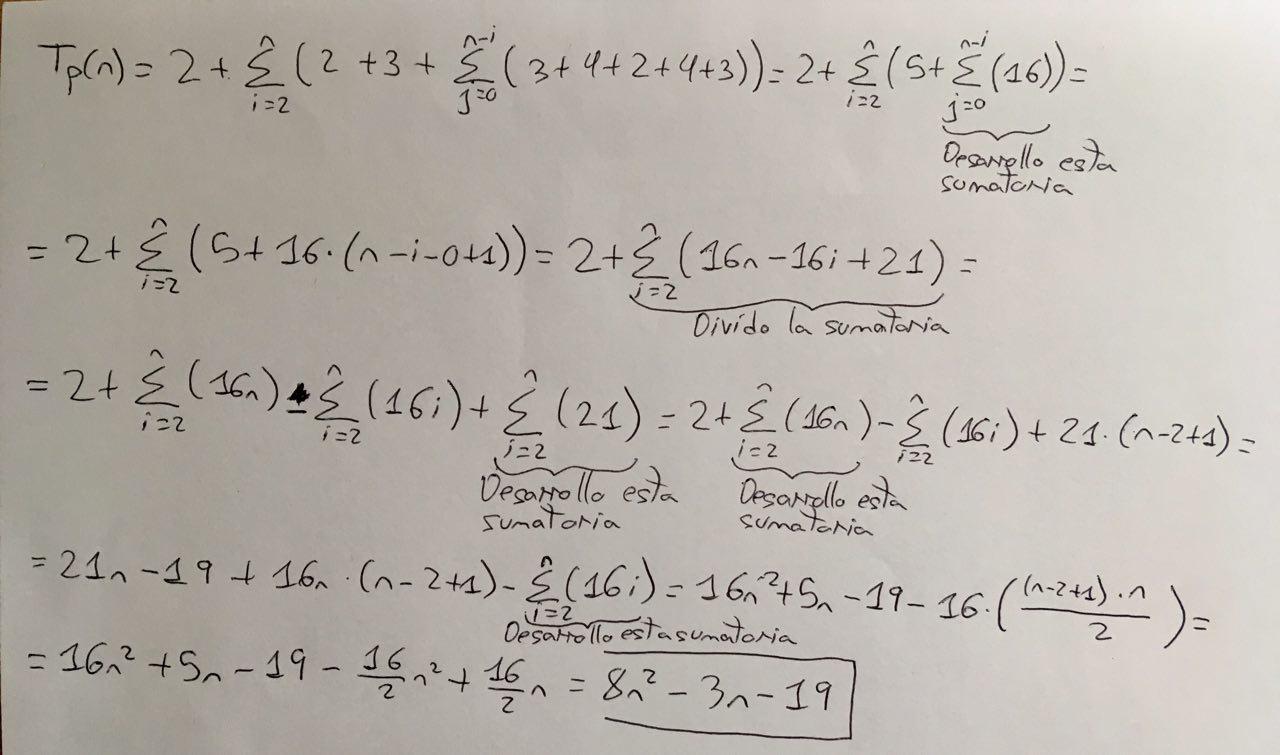 Tp(n) = 2 + Σ_{i=2}^{n} (2 + 3 + Σ_{j=0}^{n-i} (3+4+2+4+3)) = 2 + Σ_{i=2}^{n} (5 + Σ_{j=0}^{n-i} (16)) =
Desarrollo esta
sumatoria
= 2 + Σ_{i=2}^{n} (5 + 16·(n-i-0+1)) = 2 + Σ_{i=2}^{n} (16n - 16i + 21) =
Divido la sumatoria
= 2 + Σ_{i=2}^{n} (16n) - Σ_{i=2}^{n} (16i) + Σ_{i=2}^{n} (21) = 2 + Σ_{i=2}^{n} (16n) - Σ_{i=2}^{n} (16i) + 21·(n-2+1) =
Desarrollo esta sumatoria
Desarrollo esta sumatoria
= 21n - 19 + 16n·(n-2+1) - Σ_{i=2}^{n} (16i) = 16n² + 5n - 19 - 16·((n-2+1)·n / 2) =
Desarrollo esta sumatoria
= 16n² + 5n - 19 - 16/2 n² + 16/2 n = 8n² - 3n - 19